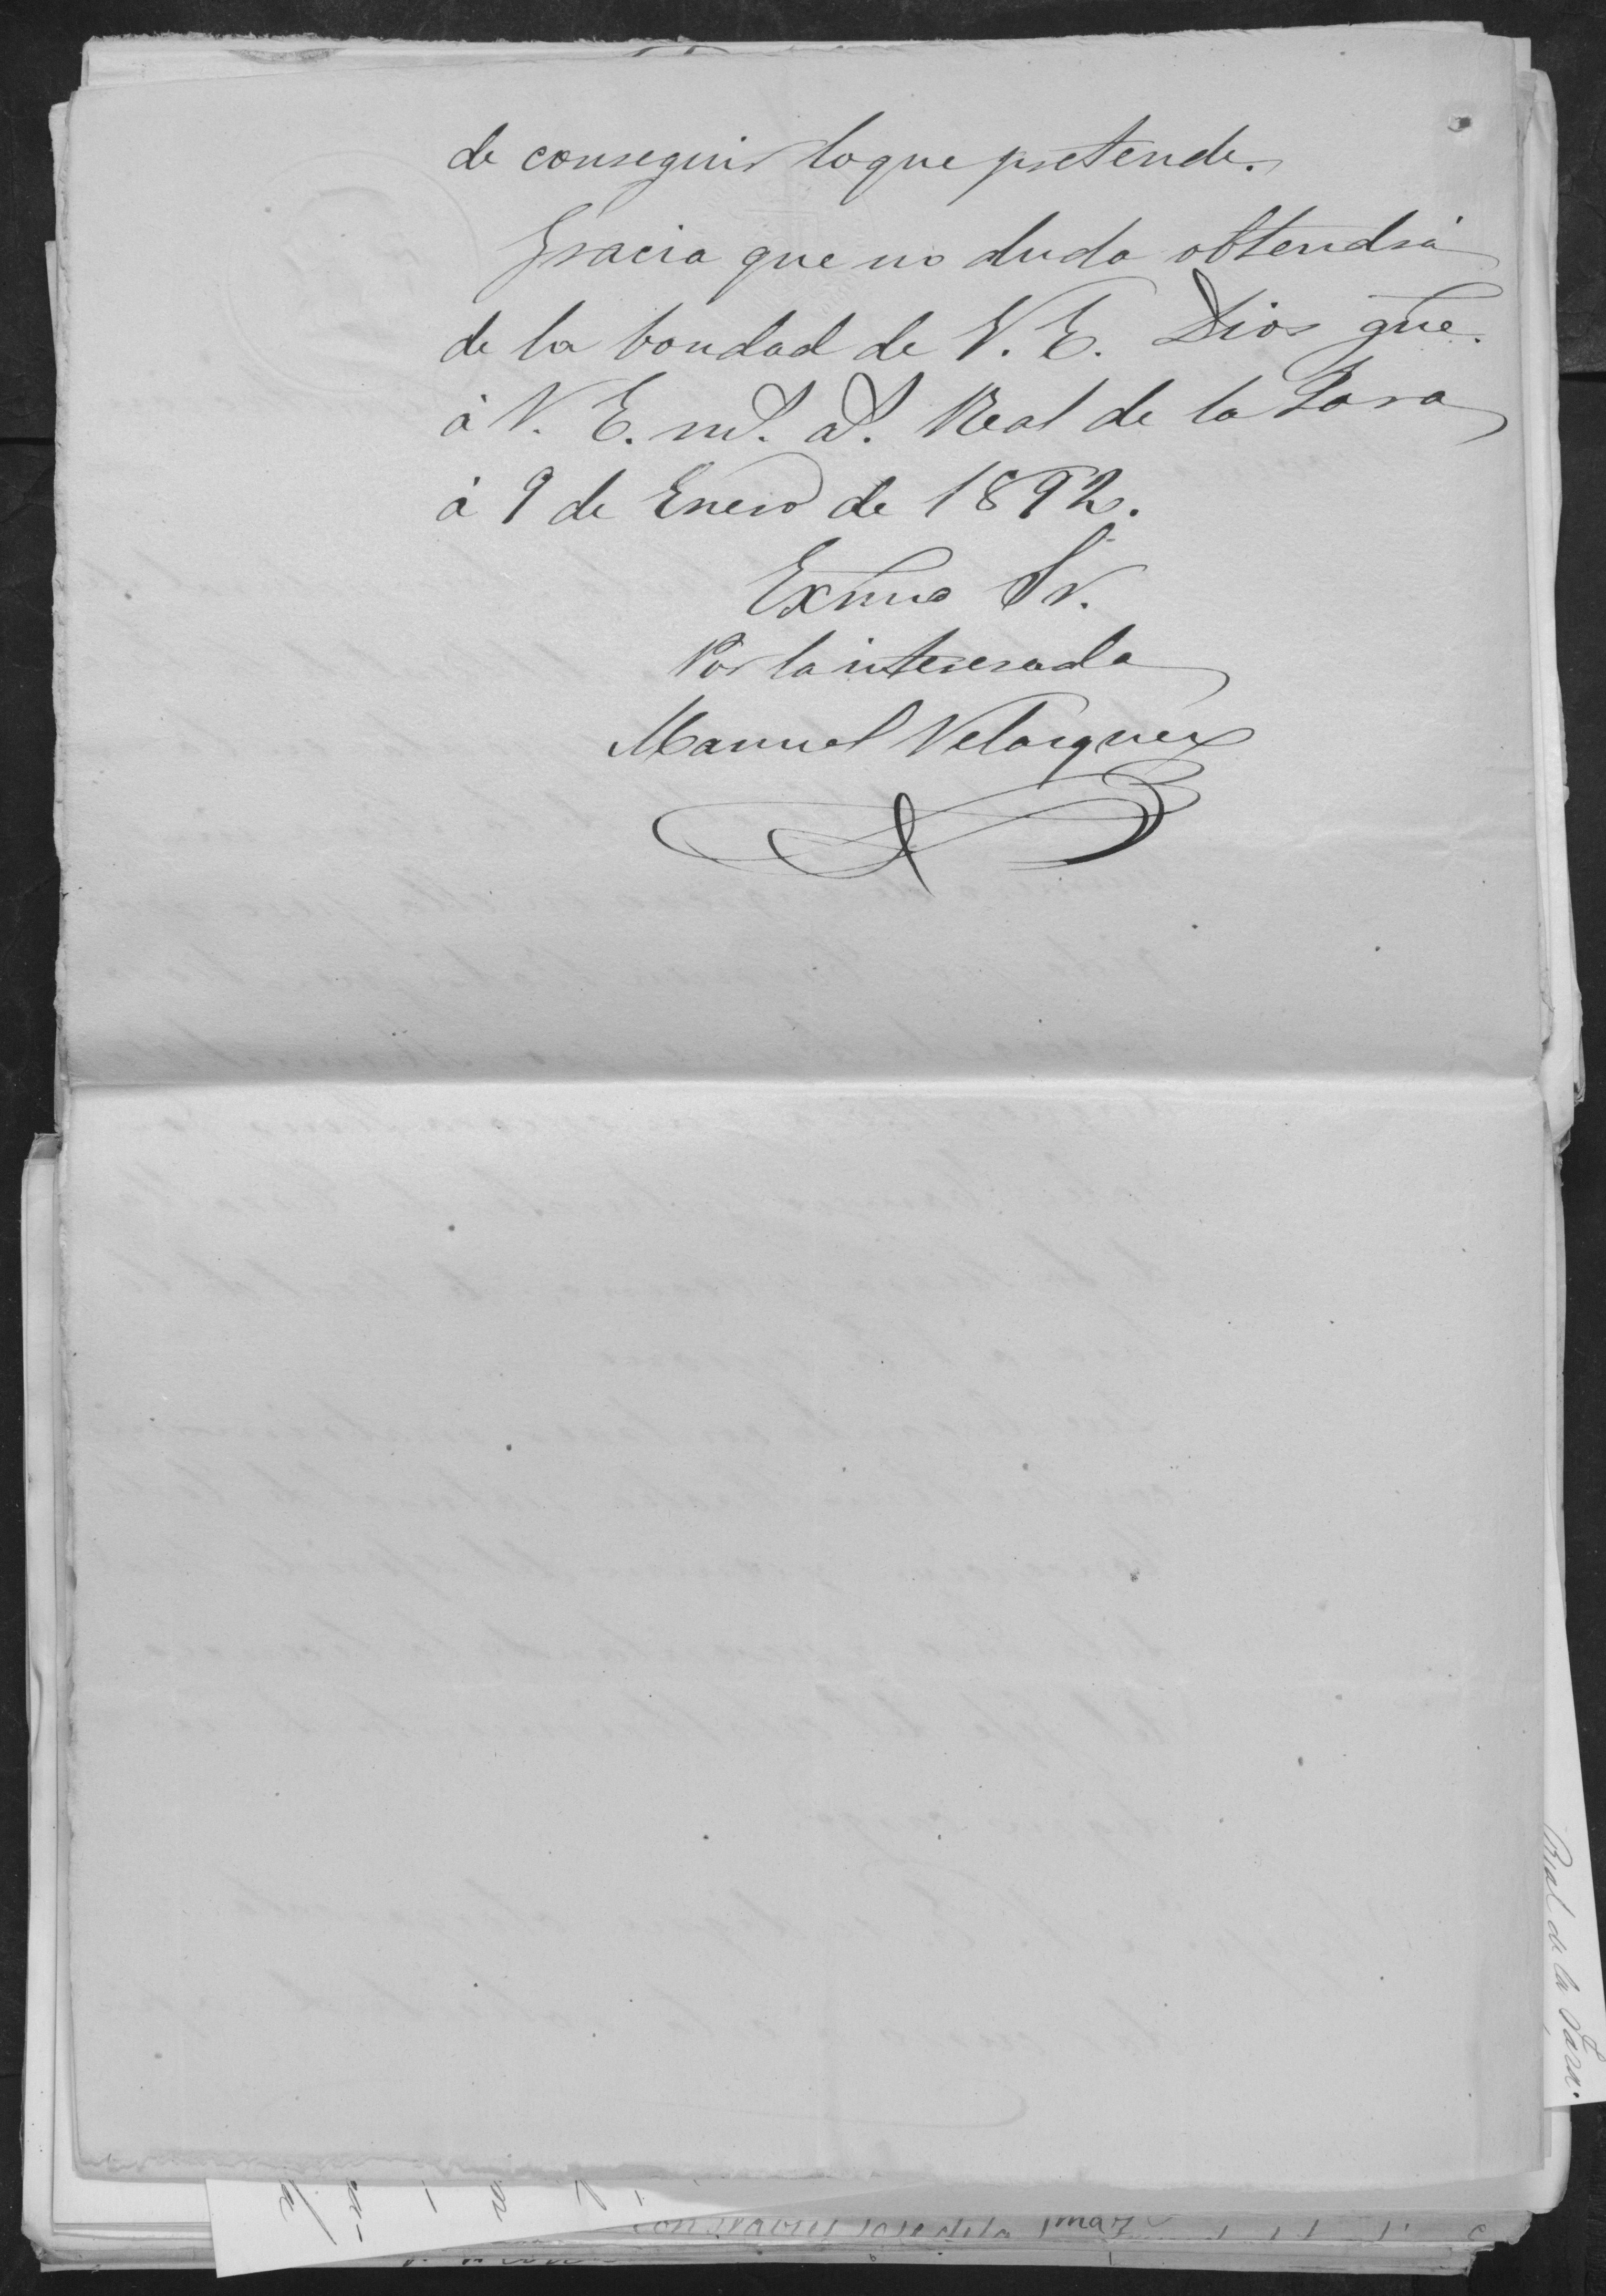 de conseguir loque pretende.
Gracia que no duda obtendrá
de la bondad de V. E. Dios gue.
á V. E. ms. as. Real de la Jara
á 9 de Enero de 1892.
Exmo Sr.
Por la interesada
Manuel Velazquez
Real de la Jara.